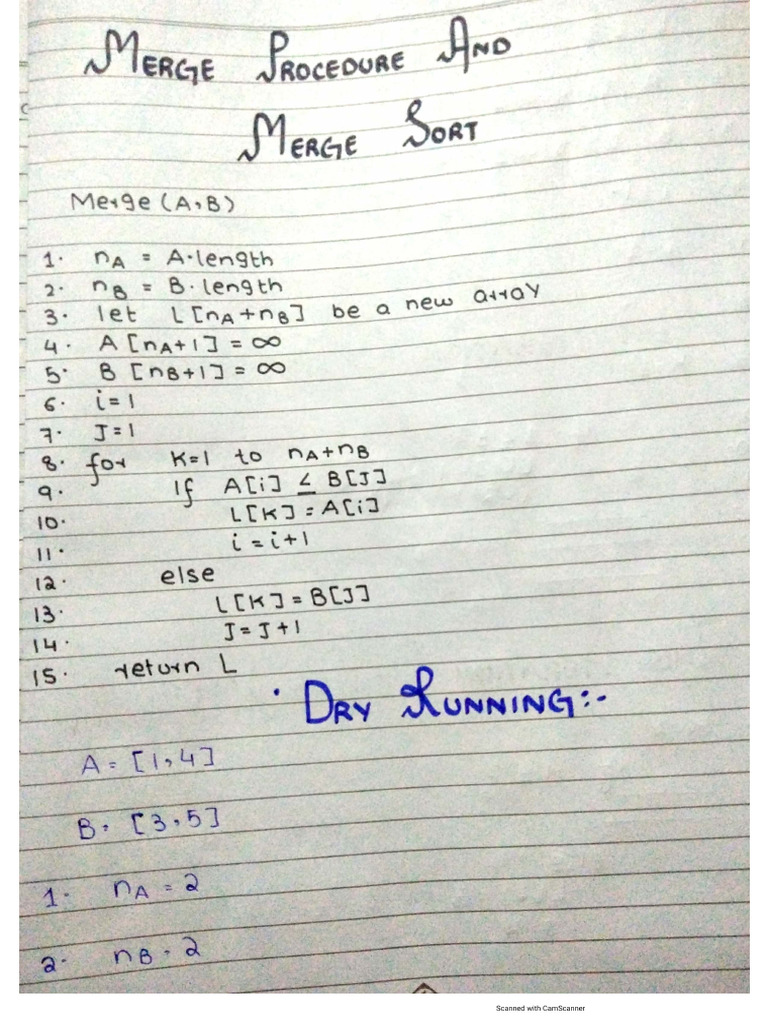 MERGE PROCEDURE AND
MERGE SORT
Merge (A,B)
1. nA = A.length
2. nB = B.length
3. let L[nA+nB] be a new array
4. A[nA+1] = ∞
5. B[nB+1] = ∞
6. i=1
7. J=1
8. for K=1 to nA+nB
9. If A[i] ≤ B[J]
10. L[K]=A[i]
11. i=i+1
12. else
13. L[K]=B[J]
14. J=J+1
15. return L
• DRY RUNNING:-
A = [1,4]
B = [3,5]
1. nA = 2
2. nB = 2
Scanned with CamScanner